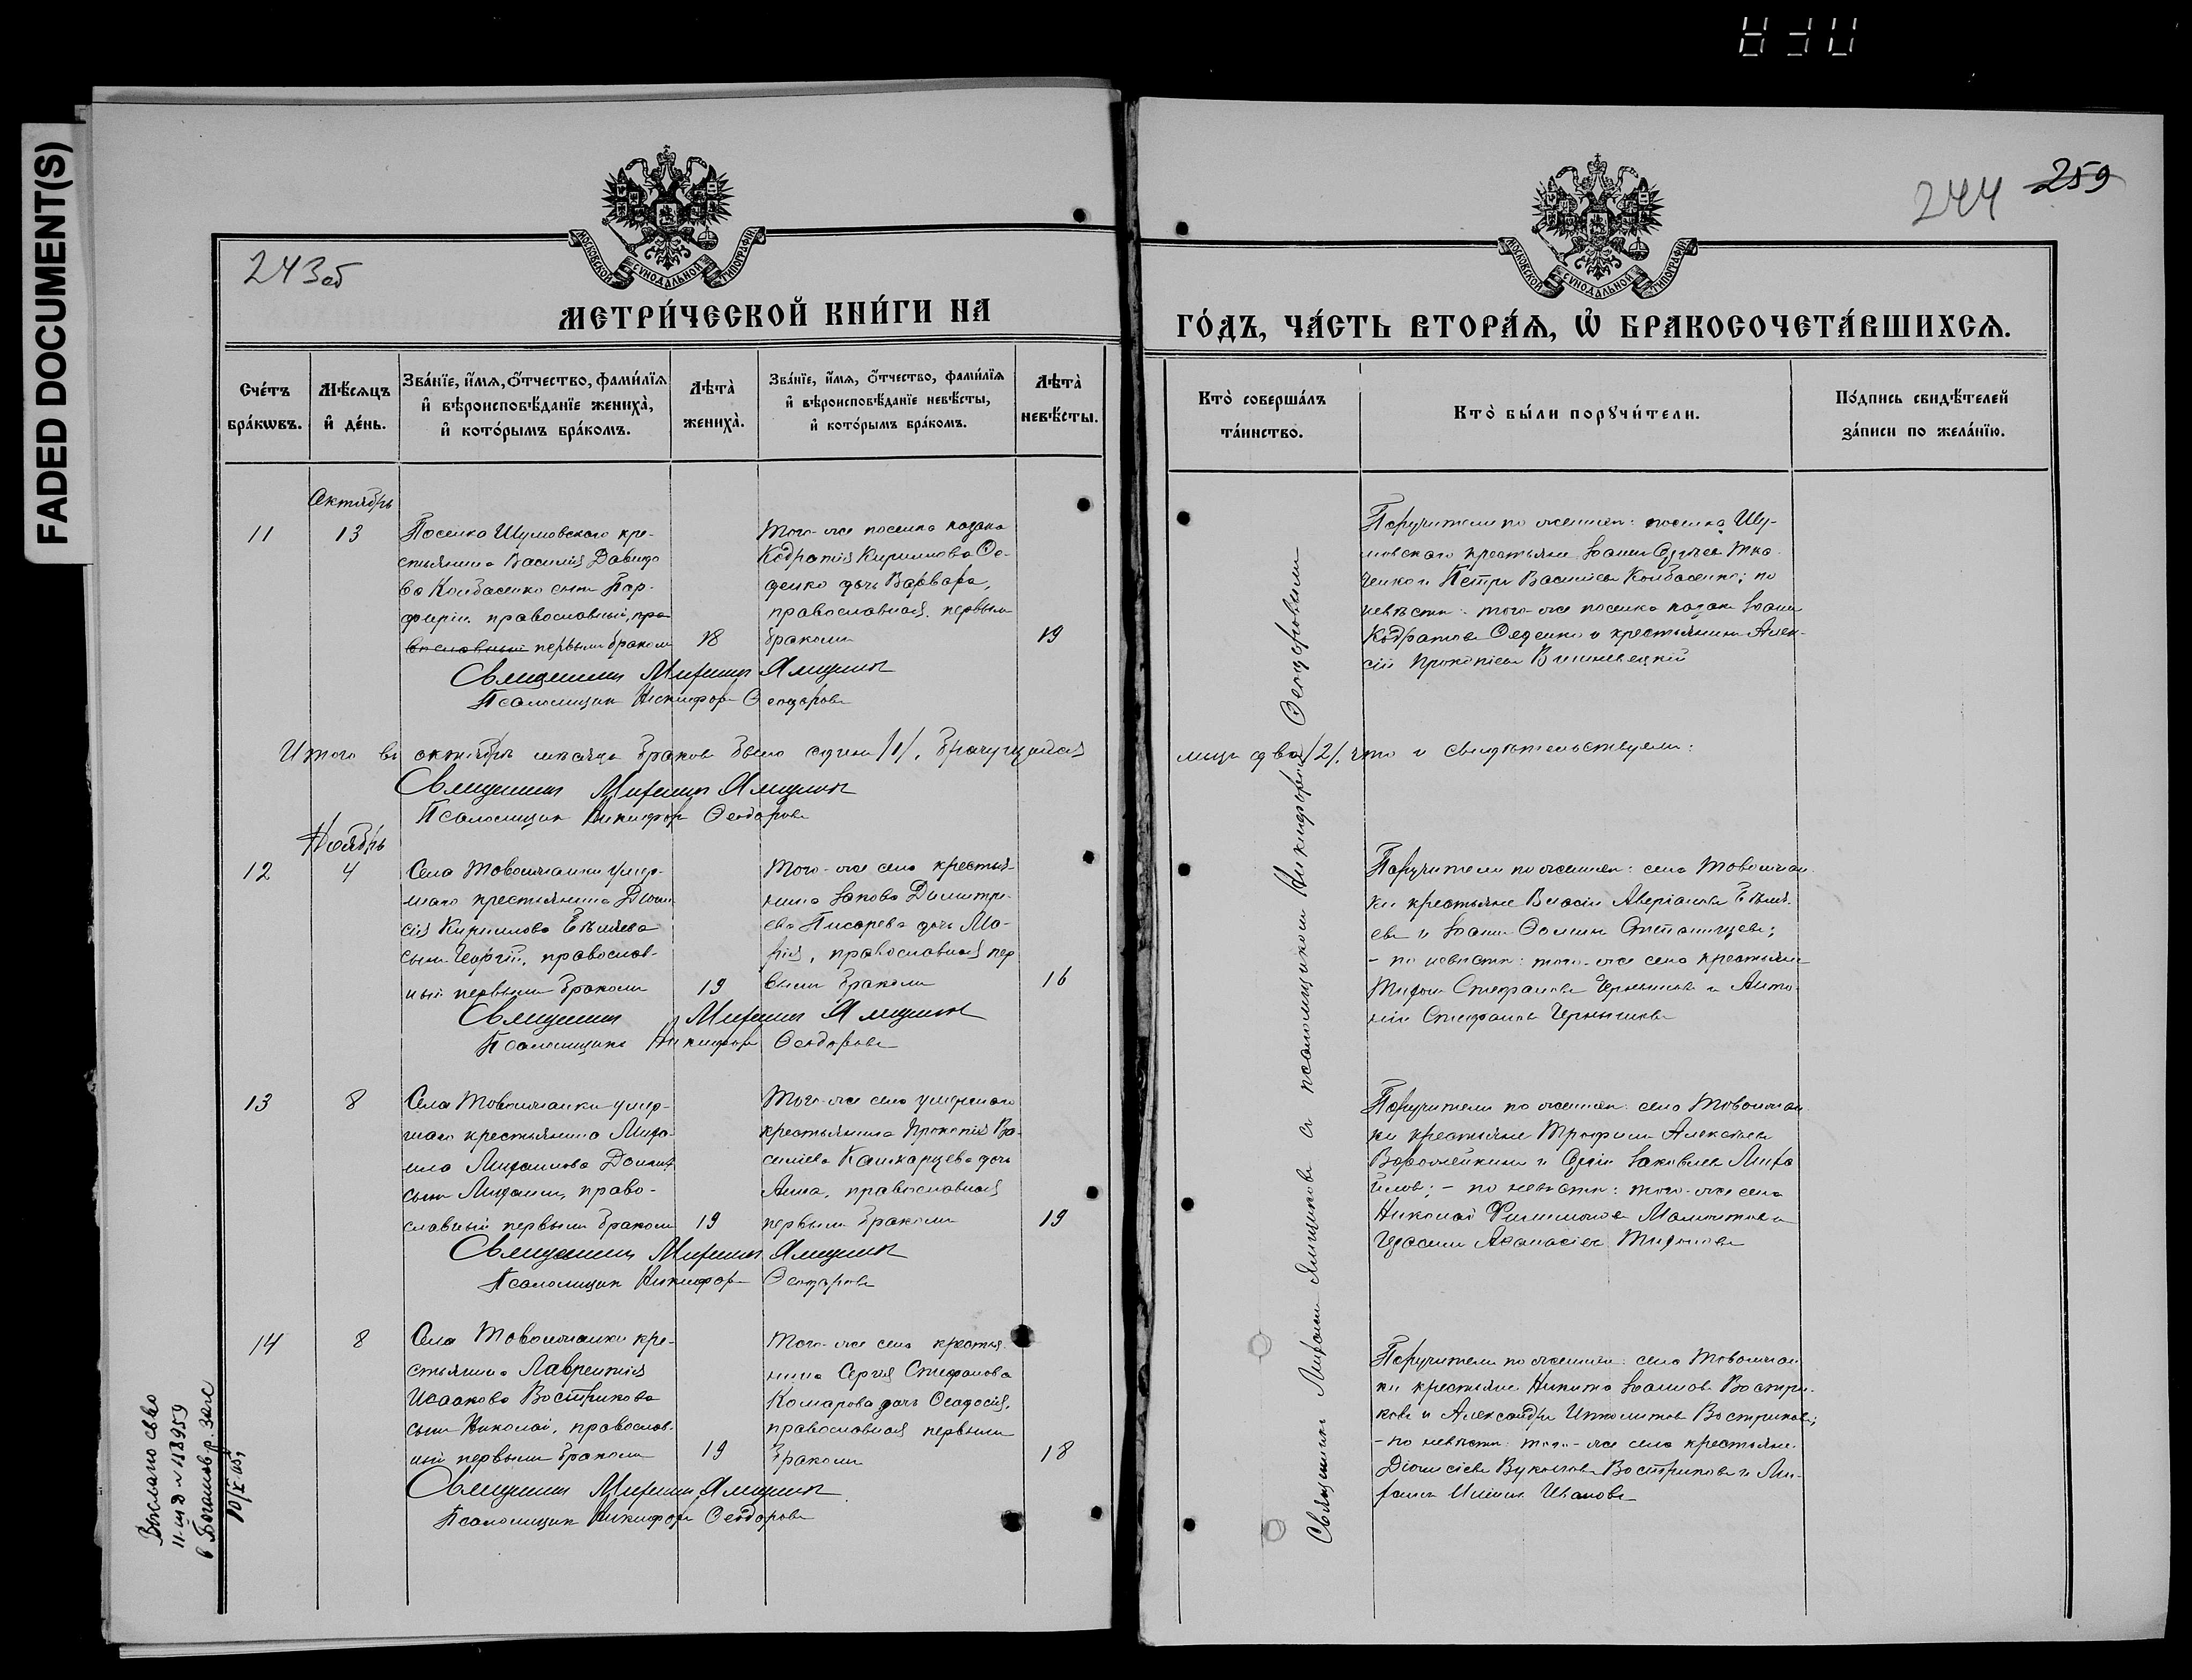 FADED DOCUMENT(S)
243об
МОСКОВСКОЙ СУНОДАЛЬНОЙ ТИПОГРАФІИ
МЕТРИ́ЧЕСКОЙ КНИ́ГИ НА
Сче́тъ бра́кѡвъ.
Мѣ́сѧцъ и҆ де́нь.
Зва́нїе, и҆́мѧ, ѻ҆́тчество, фами́лїѧ и҆ вѣроисповѣ́данїе жениха̀, и҆ кото́рымъ бра́комъ.
Лѣта̀ жениха̀.
Зва́нїе, и҆́мѧ, ѻ҆́тчество, фами́лїѧ и҆ вѣроисповѣ́данїе невѣ́сты, и҆ кото́рымъ бра́комъ.
Лѣта̀ невѣ́сты.
Октябрь
11
13
Поселка Шумовскаго кре-
стьянина Василія Давидо
ва Колбасенко сынъ Пор-
фирій, православный, пра
вославный первымъ бракомъ
18
Того-же поселка казака
Кодратія Кириллова
дочь Варвара,
православная, первымъ
бракомъ
19
Священникъ Миронъ Ямщиковъ
Псаломщикъ Никифоръ Ѳеодоровъ
Итого въ октябрѣ мѣсяцѣ браковъ было одинъ /1/, брачущихся
Священникъ Миронъ Ямщиковъ
Псаломщикъ Никифоръ Ѳеодоровъ
Ноябрь
12
4
Села Товолжанки умер-
шаго крестьянина Діони
сія Кириллова Бѣляева
сынъ Георгій, православ-
ный первымъ бракомъ
19
Того-же села крестья-
нина Іакова Димитрі-
ева Писарева дочь Ма-
рія, православная пер
вымъ бракомъ
16
Священникъ Миронъ Ямщиковъ
Псаломщикъ Никифоръ Ѳеодоровъ
13
8
Села Товолжанки умер-
шаго крестьянина Миха
ила Михаилова
сынъ Михаилъ, право-
славный первымъ бракомъ
19
Того-же села умершаго
крестьянина Прокопія Ва-
силіева дочь
Анна, православная
первымъ бракомъ
19
Священникъ Миронъ Ямщиковъ
Псаломщикъ Никифоръ Ѳеодоровъ
14
8
Села Товолжанки кре-
стьянина Лаврентія
Исаакова Вострикова
сынъ Николай, православ-
ный первымъ бракомъ
19
Того-же села крестья-
нина Сергія Стефанова
Комарова дочь Ѳеодосія,
православная первымъ
бракомъ
18
Священникъ Миронъ Ямщиковъ
Псаломщикъ Никифоръ Ѳеодоровъ
Выслано св-во
№ 18959
244
259
МОСКОВСКОЙ СУНОДАЛЬНОЙ ТИПОГРАФІИ
ГО́ДЪ, ЧА́СТЬ ВТОРА́Ѧ, Ѡ҆ БРАКОСОЧЕТА́ВШИХСѦ.
Кто̀ соверша́лъ та́инство.
Кто̀ бы́ли порꙋчи́тели.
По́дпись свидѣ́телей за́писи по жела́нїю.
Священникъ Миронъ Ямщиковъ съ псаломщикомъ Никифоромъ Ѳеодоровымъ
Поручители по женихѣ: поселка Шу-
мовскаго крестьяне Іоаннъ Тка-
ченко и Петръ Васильевъ Колбасенко; по
невѣстѣ: того-же поселка казакъ Іоаннъ
Кодратовъ и крестьянинъ Алек-
сій Прокопіевъ Вишневецкій
лицъ два /2/, что и свидѣтельствуемъ:
Поручители по женихѣ: села Товолжан-
ки крестьяне Власій Аверіановъ Бѣля-
евъ и Іоаннъ Ѳоминъ
- по невѣстѣ: того-же села крестьяне
Стефановъ Чернышовъ и Анто-
ній Стефановъ Чернышовъ
Поручители по женихѣ: села Товолжан-
ки крестьяне Трофимъ Алексѣевъ
и Сергій Іаковлевъ Миха
йловъ; - по невѣстѣ: того-же села
Николай Филимоновъ Мамонтовъ и
Аѳанасіевъ
Поручители по женихѣ: села Товолжан-
ки крестьяне Никита Іоанновъ Востри-
ковъ и Александръ Ипполитовъ Востриковъ;
- по невѣстѣ: того-же села крестьяне
Востриковъ и Ми-
Ивановъ